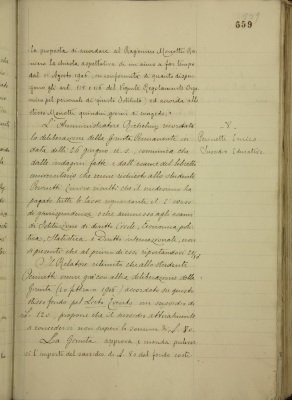 559
la proposta di accordare al Ragioniere Monetti Ra-
la chiesta aspettativa di un anno a far tempo
dal 1° Agosto 1906, in conformità di quanto dispon-
gono gli art. 115 e 116 del vigente Regolamento Orga-
nico pel personale di questo Istituto; ed accorda allo
stesso Monetti quindici giorni di congedo.
L'Amministratore ricordata
la deliberazione della Giunta Permanente in
data delli 26 giugno u. s., comunica che
dalle indagini fatte e dall'esame del libretto
universitario che venne richiesto allo studente
Enrico risultò che il medesimo ha
pagato tutte le tasse riguardanti il corso
di giurisprudenza, e che ammesso agli esami
di Istituzioni di diritto Civile, Economia po-
litica, Statistica e Diritto internazionale, non
si presentò che al primo di essi riportandovi
Il Relatore ritenuto che allo studente
venne già con altra deliberazione della
Giunta (20 febbraio 1906) accordato su questo
stesso fondo pel Lascito un sussidio di
L. 120, propone che il sussidio attualmente
a concedersi non superi la somma di L. 80.
La Giunta approva e manda prelevar-
si l'importo del sussidio di L. 80 dal fondo costi-
V.
Enrico
Sussidio